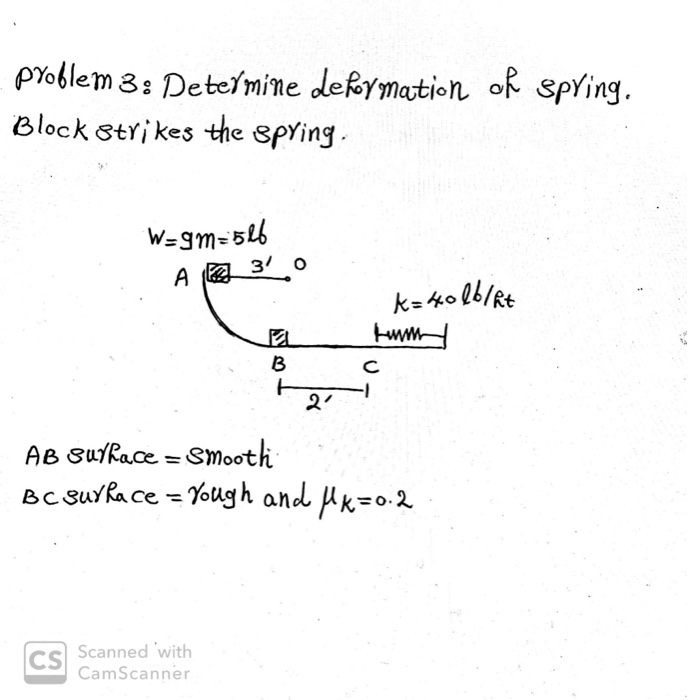 Problem 3: Determine deformation of spring.
Block strikes the spring.
W=gm=5lb
A 3' O
k=40lb/ft
B C
2'
AB surface = smooth
BC surface = rough and μk=0.2
CS Scanned with
CamScanner